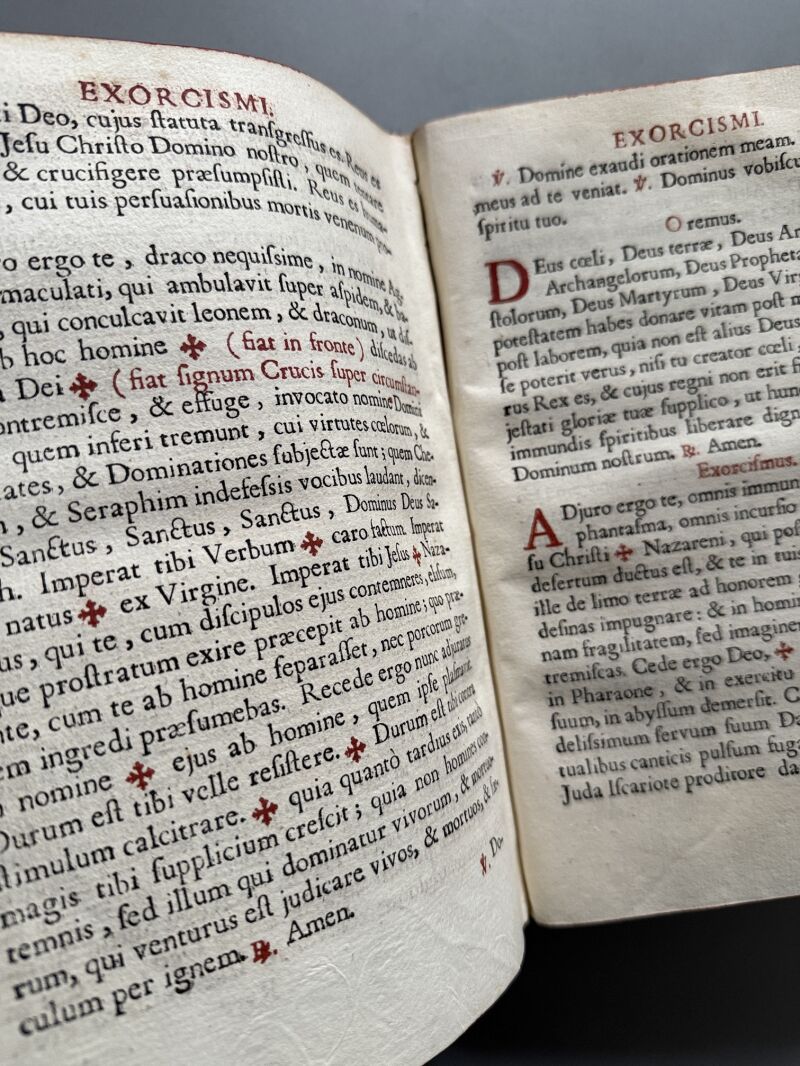 EXORCISMI.
i Deo, cujus ſtatuta tranſgreſſus es. Reus es
Jeſu Chriſto Domino noſtro, quem tentare
& crucifigere præſumpſiſti. Reus es huma-
, cui tuis perſuaſionibus mortis venenum pro-
ro ergo te, draco nequiſsime, in nomine Ag-
maculati, qui ambulavit ſuper aſpidem, & ba-
, qui conculcavit leonem, & draconum, ut diſ-
b hoc homine ✠ (fiat in fronte) diſcedas ab
a Dei ✠ (fiat ſignum Crucis ſuper circumſtan-
ontremiſce, & effuge, invocato nomine Domini
quem inferi tremunt, cui virtutes cœlorum, &
ates, & Dominationes ſubjectæ ſunt; quem Che-
, & Seraphim indefeſsis vocibus laudant, dicen-
Sanctus, Sanctus, Sanctus, Dominus Deus Sa-
h. Imperat tibi Verbum ✠ caro factum. Imperat
natus ✠ ex Virgine. Imperat tibi Jeſus ✠ Naza-
us, qui te, cum diſcipulos ejus contemneres, eliſum,
que proſtratum exire præcepit ab homine; quo præ-
nte, cum te ab homine ſeparaſſet, nec porcorum gre-
em ingredi præſumebas. Recede ergo nunc adjuratus
n nomine ✠ ejus ab homine, quem ipſe plaſmavit.
Durum eſt tibi velle reſiſtere. ✠ Durum eſt tibi contra
ſtimulum calcitrare. ✠ quia quantò tardius exis, tantò
magis tibi ſupplicium creſcit; quia non homines con-
temnis, ſed illum qui dominatur vivorum, & mortuo-
rum, qui venturus eſt judicare vivos, & mortuos, & ſæ-
culum per ignem. ℟. Amen.
℣. Do-
EXORCISMI.
℣. Domine exaudi orationem meam.
meus ad te veniat. ℣. Dominus vobiſcu
ſpiritu tuo.
Oremus.
DEus cœli, Deus terræ, Deus An
Archangelorum, Deus Propheta
ſtolorum, Deus Martyrum, Deus Virg
poteſtatem habes donare vitam poſt m
poſt laborem, quia non eſt alius Deus
ſe poterit verus, niſi tu creator cœli,
rus Rex es, & cujus regni non erit fi
jeſtati gloriæ tuæ ſupplico, ut hun
immundis ſpiritibus liberare dign
Dominum noſtrum. ℟. Amen.
Exorciſmus.
ADjuro ergo te, omnis immun
phantaſma, omnis incurſio
ſu Chriſti ✠ Nazareni, qui poſ
deſertum ductus eſt, & te in tuis
ille de limo terræ ad honorem
deſinas impugnare: & in homin
nam fragilitatem, ſed imaginem
tremiſcas. Cede ergo Deo, ✠
in Pharaone, & in exercitu
ſuum, in abyſſum demerſit. C
deliſsimum ſervum ſuum Da
tualibus canticis pulſum fuga
Juda Iſcariote proditore da